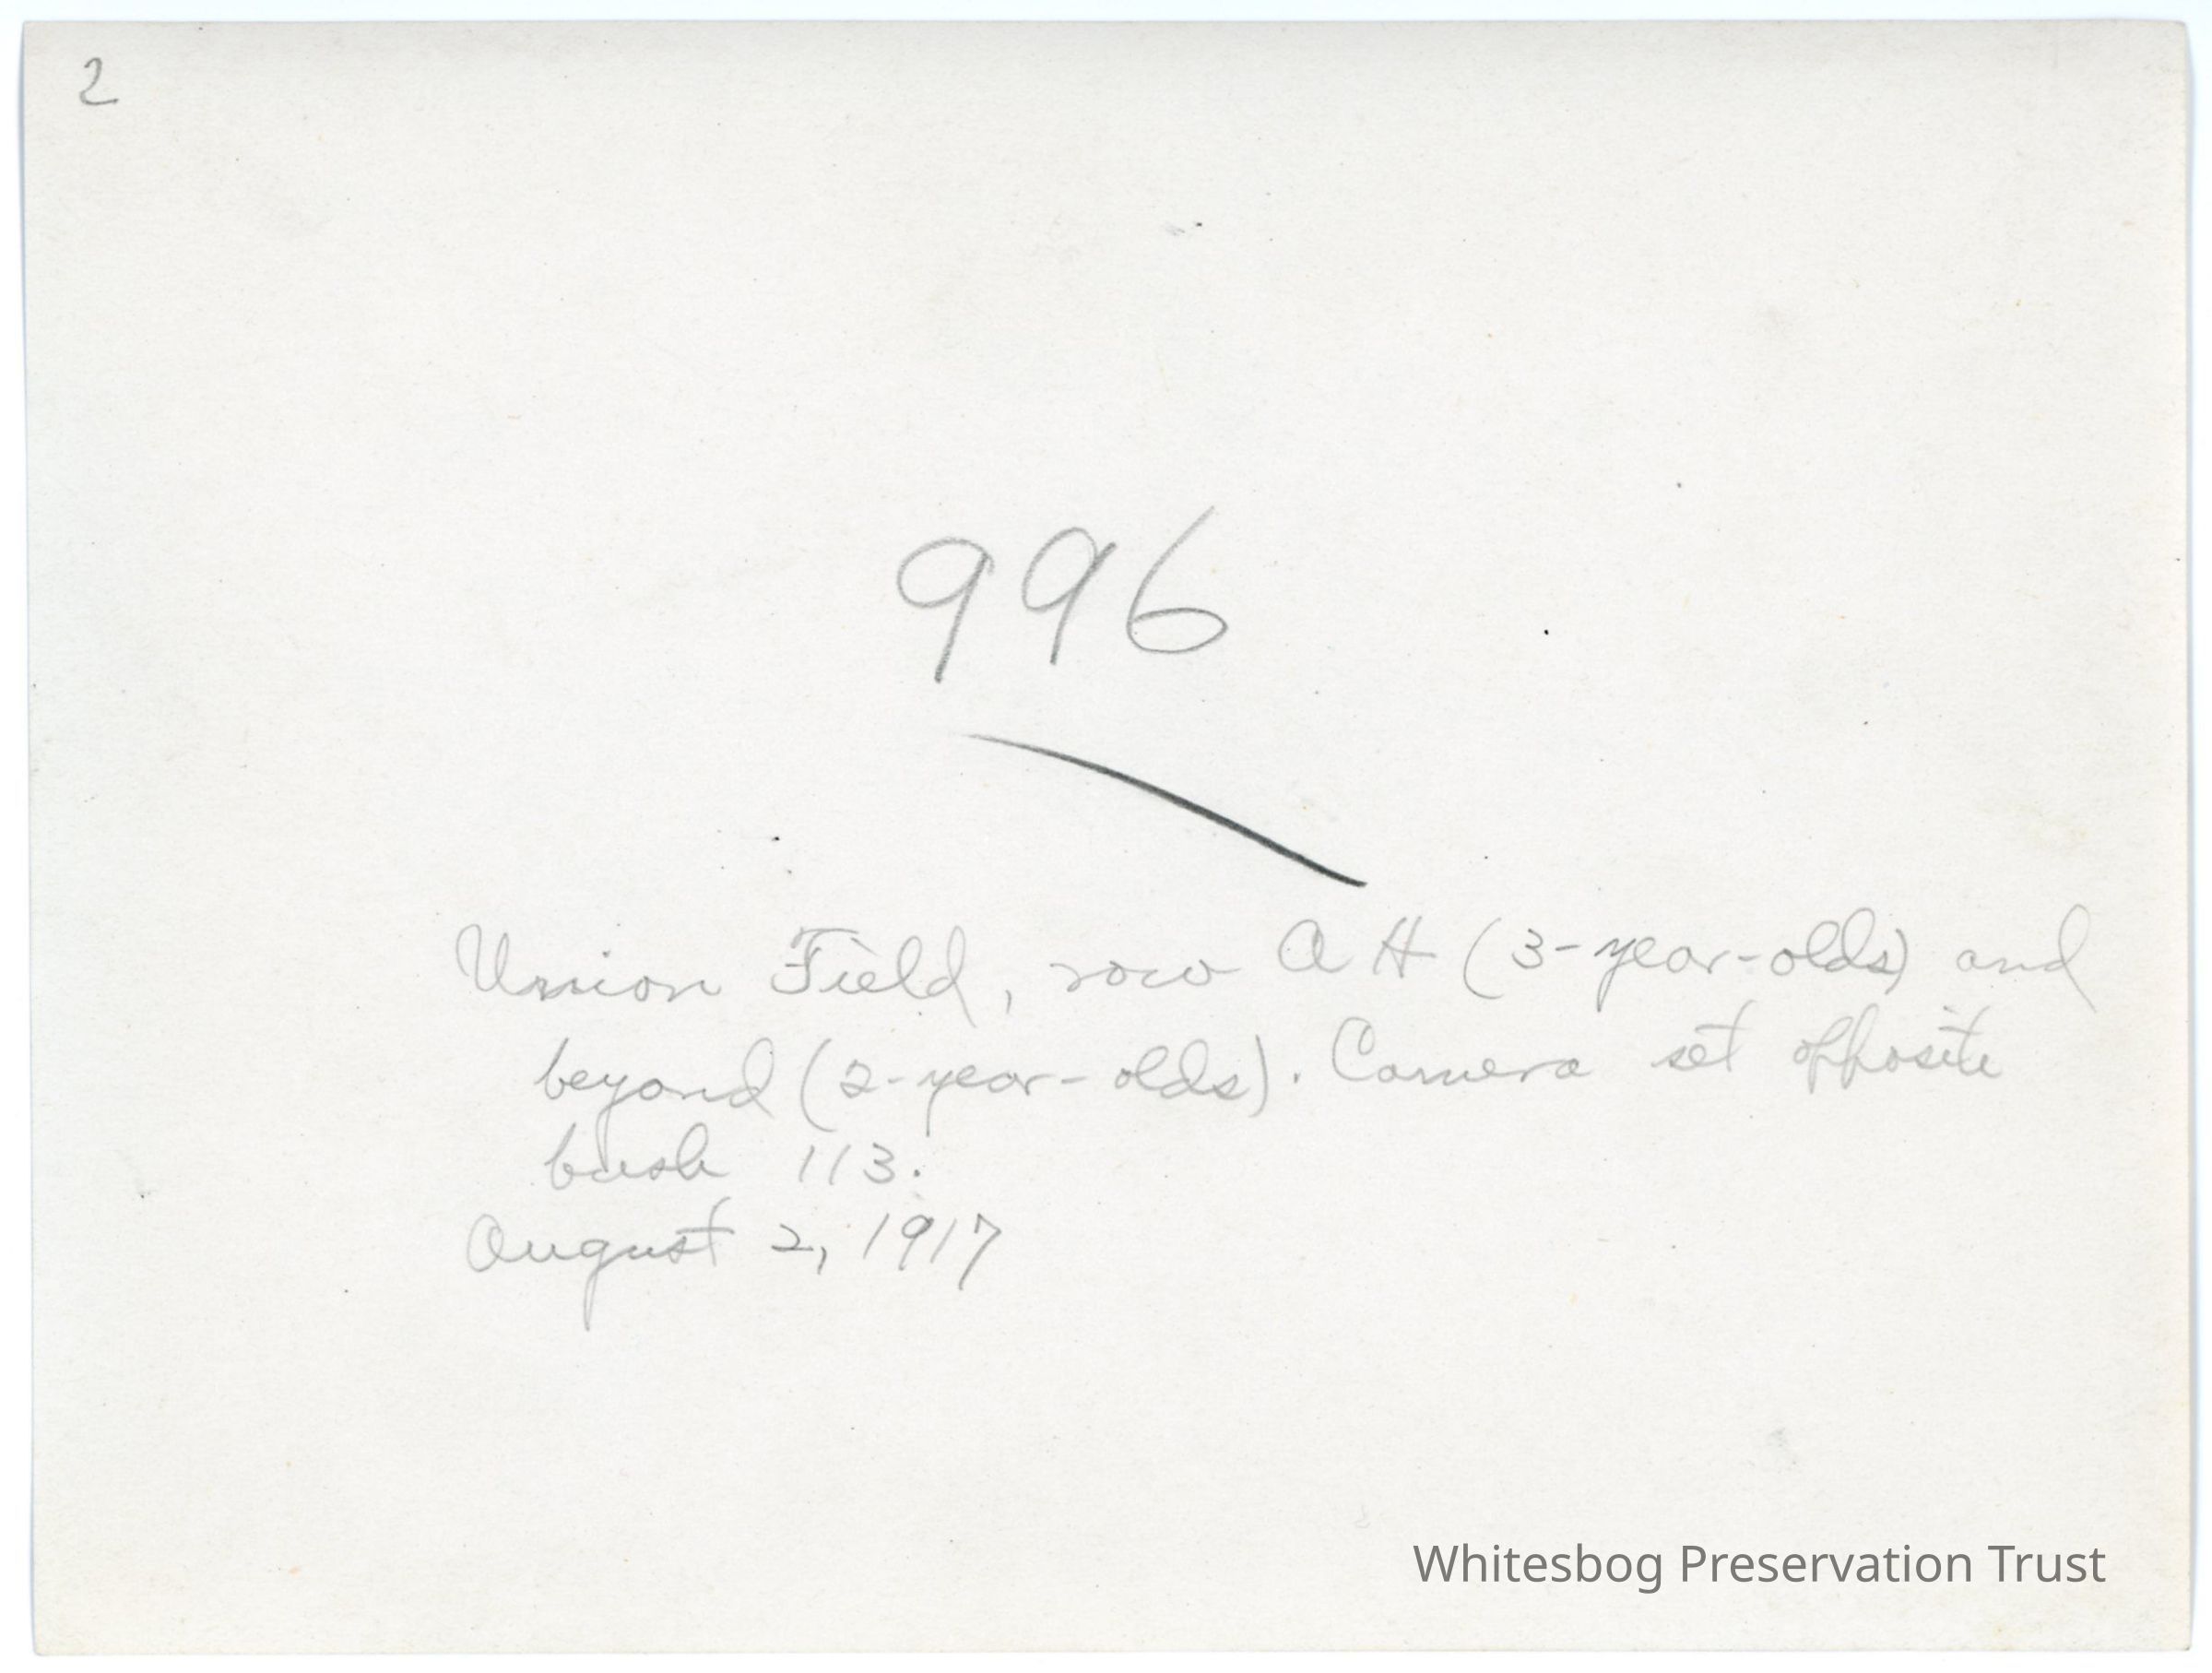 2
996
Union Field, row A H (3-year-olds) and
beyond (2-year-olds). Camera set opposite
bush 113.
August 2, 1917
Whitesbog Preservation Trust